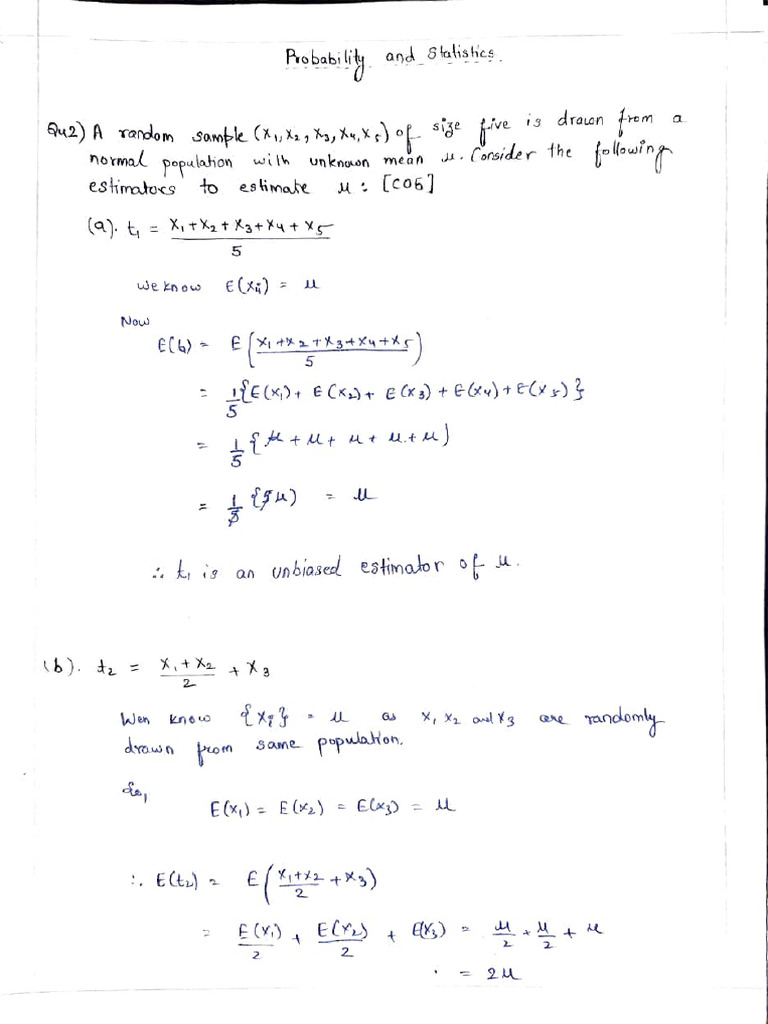 Probability and Statistics.
Qu2) A random sample (X₁, X₂, X₃, X₄, X₅) of size five is drawn from a
normal population with unknown mean μ. Consider the following
estimators to estimate μ : [CO6]
(a). t₁ = (X₁ + X₂ + X₃ + X₄ + X₅) / 5
We know E(Xᵢ) = μ
Now
E(t₁) = E((X₁ + X₂ + X₃ + X₄ + X₅) / 5)
= 1/5 {E(X₁) + E(X₂) + E(X₃) + E(X₄) + E(X₅)}
= 1/5 {μ + μ + μ + μ + μ)
= 1/5 {5μ) = μ
∴ t₁ is an unbiased estimator of μ.
(b). t₂ = (X₁ + X₂) / 2 + X₃
Wen know {Xᵢ} = μ as X₁ X₂ and X₃ are randomly
drawn from same population.
So,
E(X₁) = E(X₂) = E(X₃) = μ
∴ E(t₂) = E((X₁ + X₂) / 2 + X₃)
= E(X₁) / 2 + E(X₂) / 2 + E(X₃) = μ/2 + μ/2 + μ
= 2μ